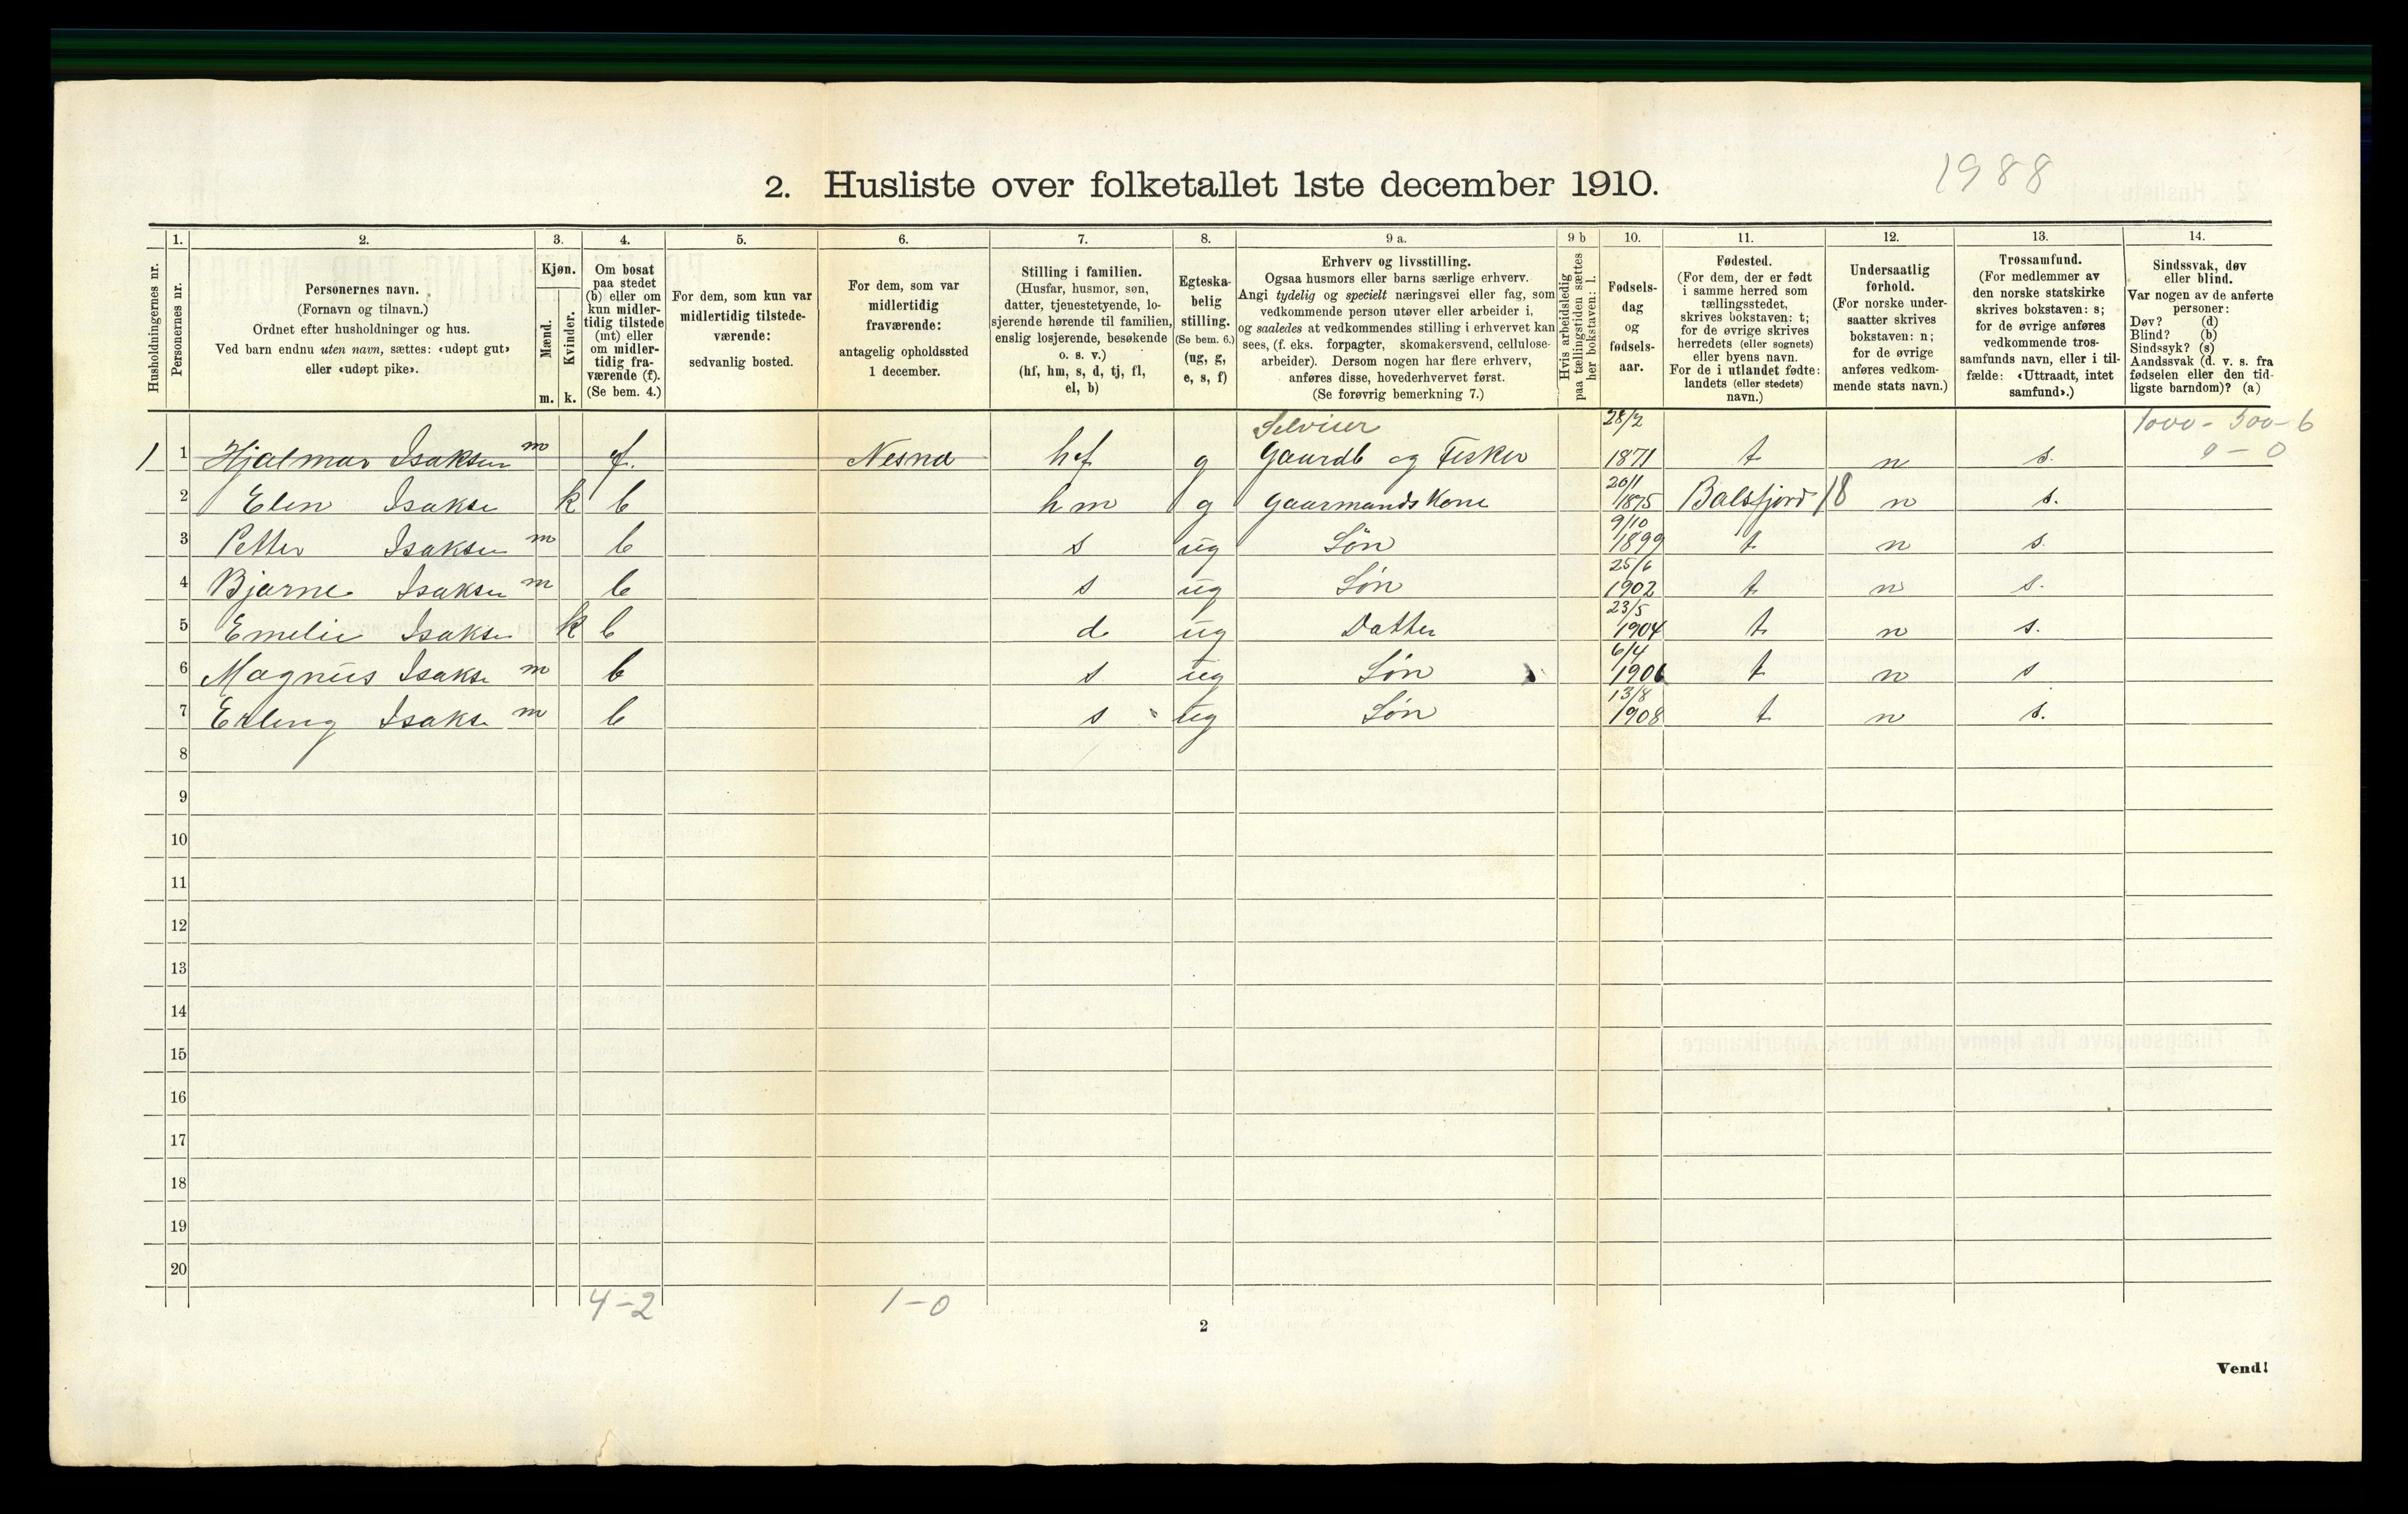 1988
2. Husliste over folketallet 1ste december 1910.
Husholdningernes nr.
1.
Personernes nr.
2.
Personernes navn.
(Fornavn og tilnavn.)
Ordnet efter husholdninger og hus.
Ved barn endnu uten navn, sættes: «udøpt gut»
eller «udøpt pike».
3.
Kjøn.
Mænd.
Kvinder.
m. k.
4.
Om bosat
paa stedet
(b) eller om
kun midler-
tidig tilstede
(mt) eller
om midler-
tidig fra-
værende (f).
(Se bem. 4.)
5.
For dem, som kun var
midlertidig tilstede-
værende:
sedvanlig bosted.
6.
For dem, som var
midlertidig
fraværende:
antagelig opholdssted
1 december.
7.
Stilling i familien.
(Husfar, husmor, søn,
datter, tjenestetyende, lo-
sjerende hørende til familien,
enslig losjerende, besøkende
o. s. v.)
(hf, hm, s, d, tj, fl,
el, b)
8.
Egteska-
belig
stilling.
(Se bem. 6.)
(ug, g,
e, s, f)
9 a.
Erhverv og livsstilling.
Ogsaa husmors eller barns særlige erhverv.
Angi tydelig og specielt næringsvei eller fag, som
vedkommende person utøver eller arbeider i,
og saaledes at vedkommendes stilling i erhvervet kan
sees, (f. eks. forpagter, skomakersvend, cellulose-
arbeider). Dersom nogen har flere erhverv,
anføres disse, hovederhvervet først.
(Se forøvrig bemerkning 7.)
9 b
Hvis arbeidsledig
paa tællingstiden sættes
her bokstaven: l.
10.
Fødsels-
dag
og
fødsels-
aar.
11.
Fødested.
(For dem, der er født
i samme herred som
tællingsstedet,
skrives bokstaven: t;
for de øvrige skrives
herredets (eller sognets)
eller byens navn.
For de i utlandet fødte:
landets (eller stedets)
navn.)
12.
Undersaatlig
forhold.
(For norske under-
saatter skrives
bokstaven: n;
for de øvrige
anføres vedkom-
mende stats navn.)
13.
Trossamfund.
(For medlemmer av
den norske statskirke
skrives bokstaven: s;
for de øvrige anføres
vedkommende tros-
samfunds navn, eller i til-
fælde: «Uttraadt, intet
samfund».)
14.
Sindssvak, døv
eller blind.
Var nogen av de anførte
personer:
Døv? (d)
Blind? (b)
Sindssyk? (s)
Aandssvak (d. v. s. fra
fødselen eller den tid-
ligste barndom)? (a)
28/2 1000 - 300 - 6
1 1 Hjalmar Isaksen m f. Nesna hf g Gaardb og Fisker 1871 t n s. 0 - 0
20/1
2 Elen Isakse k b hm g Gaarmands Kone 1875 Balsfjord 18 n s.
9/10
3 Petter Isaksen m b s ug Søn 1899 t n s.
25/6
4 Bjarne Isaksen m b s ug Søn 1902 t n s.
23/5
5 Emelie Isakse k b d ug Datter 1904 t n s.
6/4
6 Magnus Isakse m b s ug Søn 1906 t n s
13/8
7 Erling Isakse m b s ug Søn 1908 t n s.
8
9
10
11
12
13
14
15
16
17
18
19
20
4 - 2 1 - 0
2
Vend!